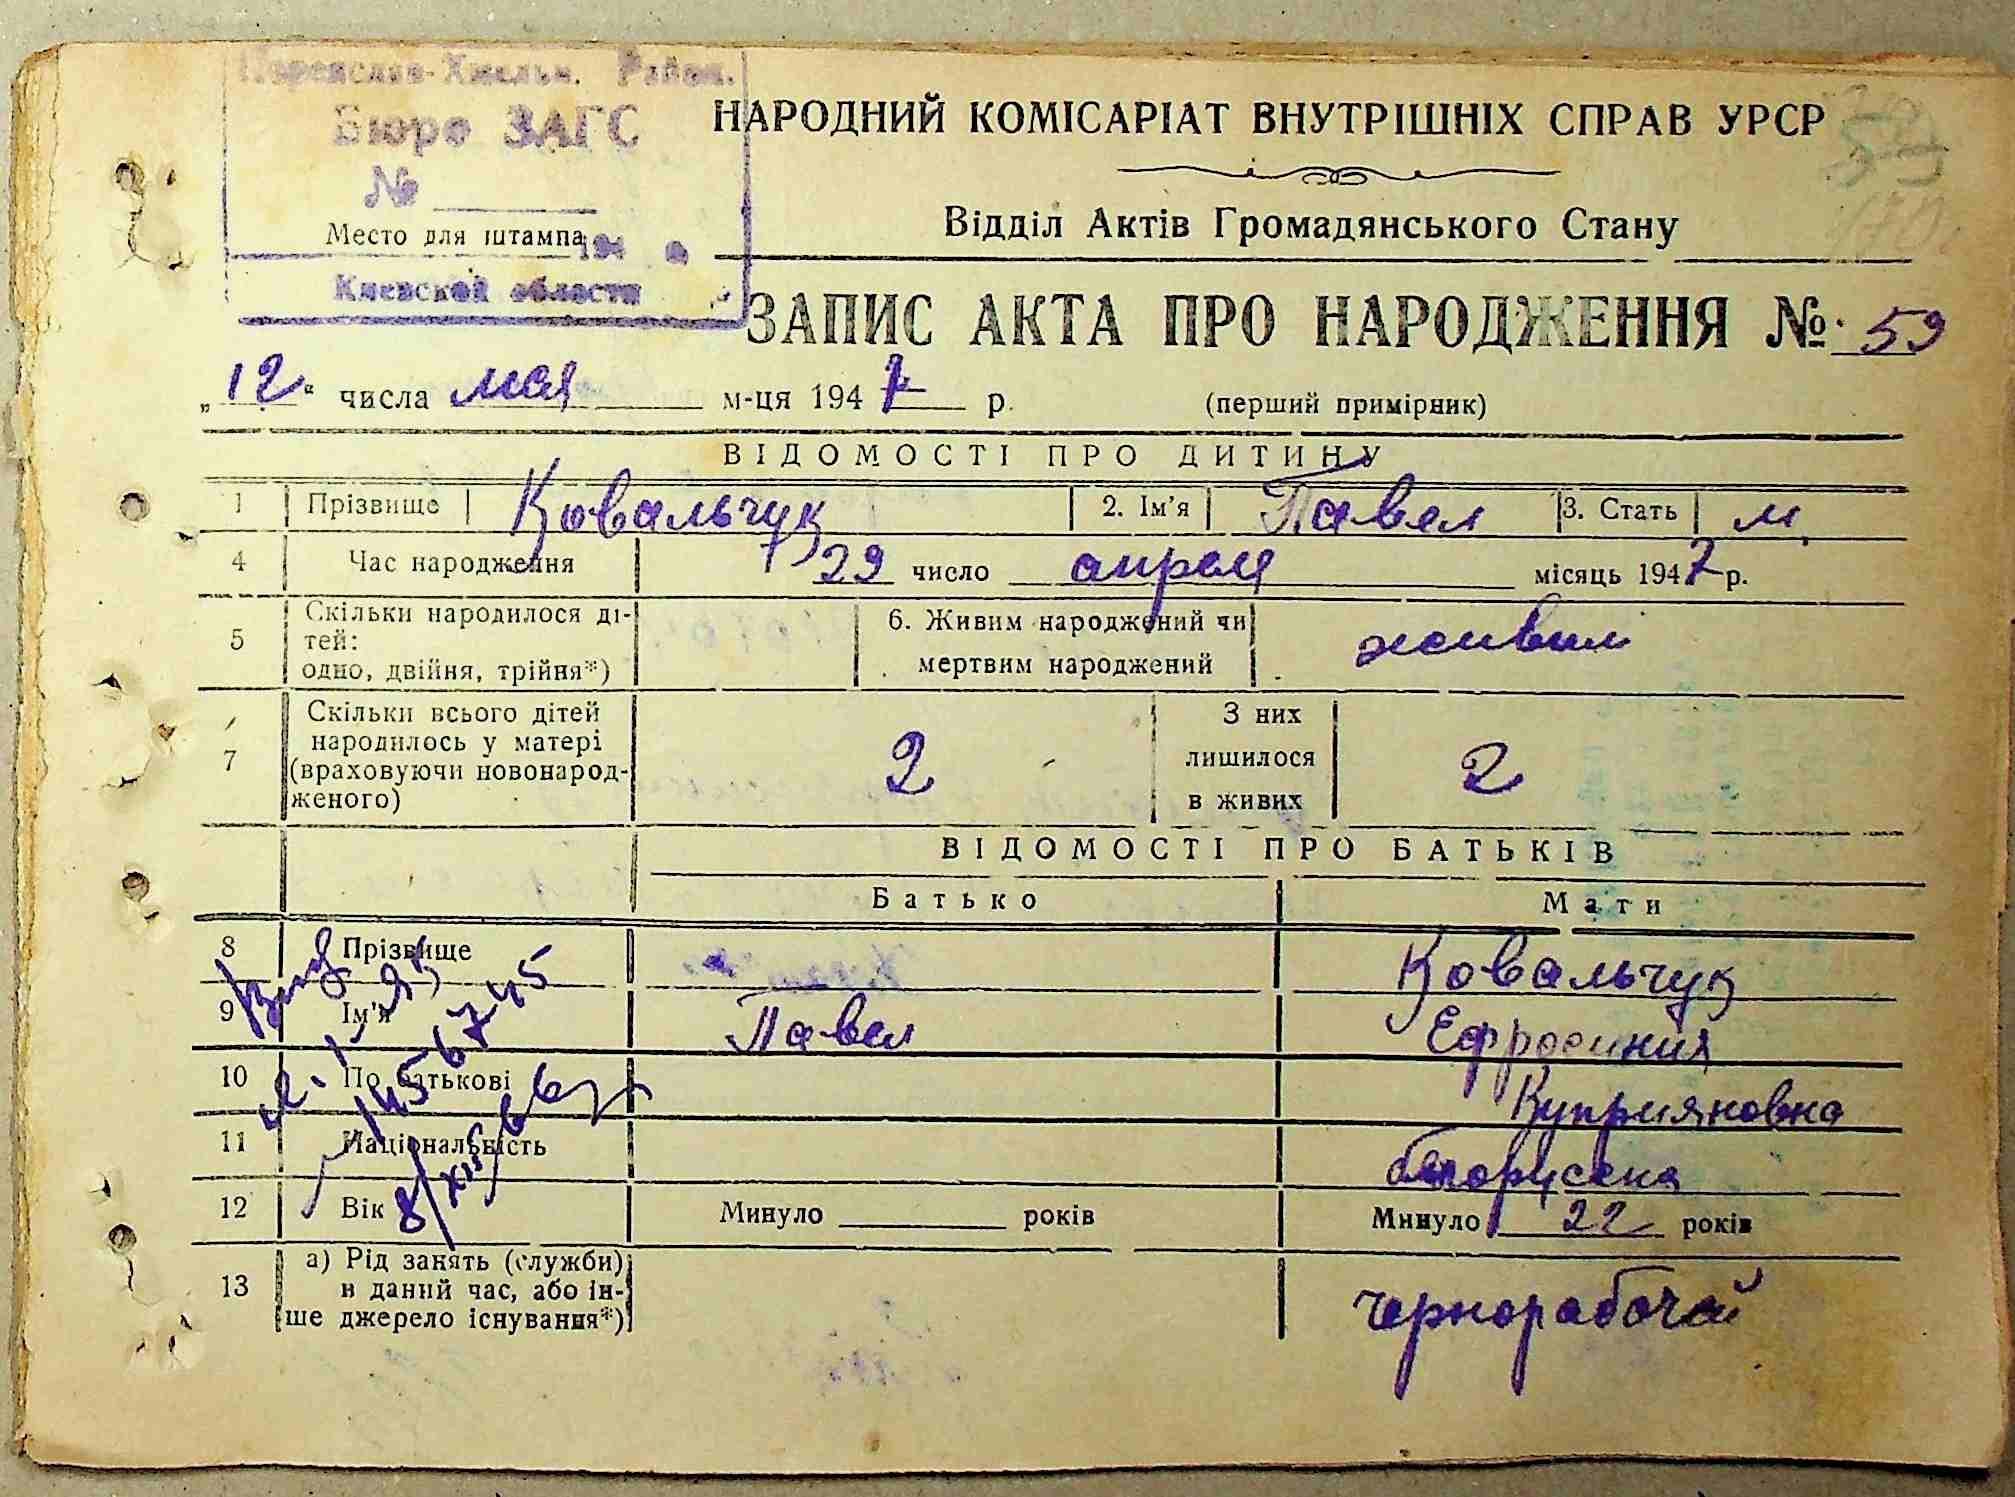 Переяслав-Хмельн. Район.
Бюро ЗАГС
№
Место для штампа 194
Киевской области
НАРОДНИЙ КОМІСАРІАТ ВНУТРІШНІХ СПРАВ УРСР
Відділ Актів Громадянського Стану
ЗАПИС АКТА ПРО НАРОДЖЕННЯ № 59
„12“ числа мая м-ця 1947 р. (перший примірник)
ВІДОМОСТІ ПРО ДИТИНУ
1 Прізвище Ковальчук 2. Ім'я Павел 3. Стать м.
4 Час народження 29 число апреля місяць 1947 р.
5 Скільки народилося ді-
тей:
одно, двійня, трійня*)
6. Живим народжений чи
мертвим народжений
живым
7 Скільки всього дітей
народилось у матері
(враховуючи новонарод-
женого)
2
З них
лишилося
в живих
2
ВІДОМОСТІ ПРО БАТЬКІВ
Батько Мати
8 Прізвище Ковальчук
9 Ім'я Павел Ефросиния
10 По батькові Куприяновна
11 Національність белоруска
12 Вік Минуло років Минуло 22 років
13 а) Рід занять (служби)
в даний час, або ін-
ше джерело існування*)
чернорабочей